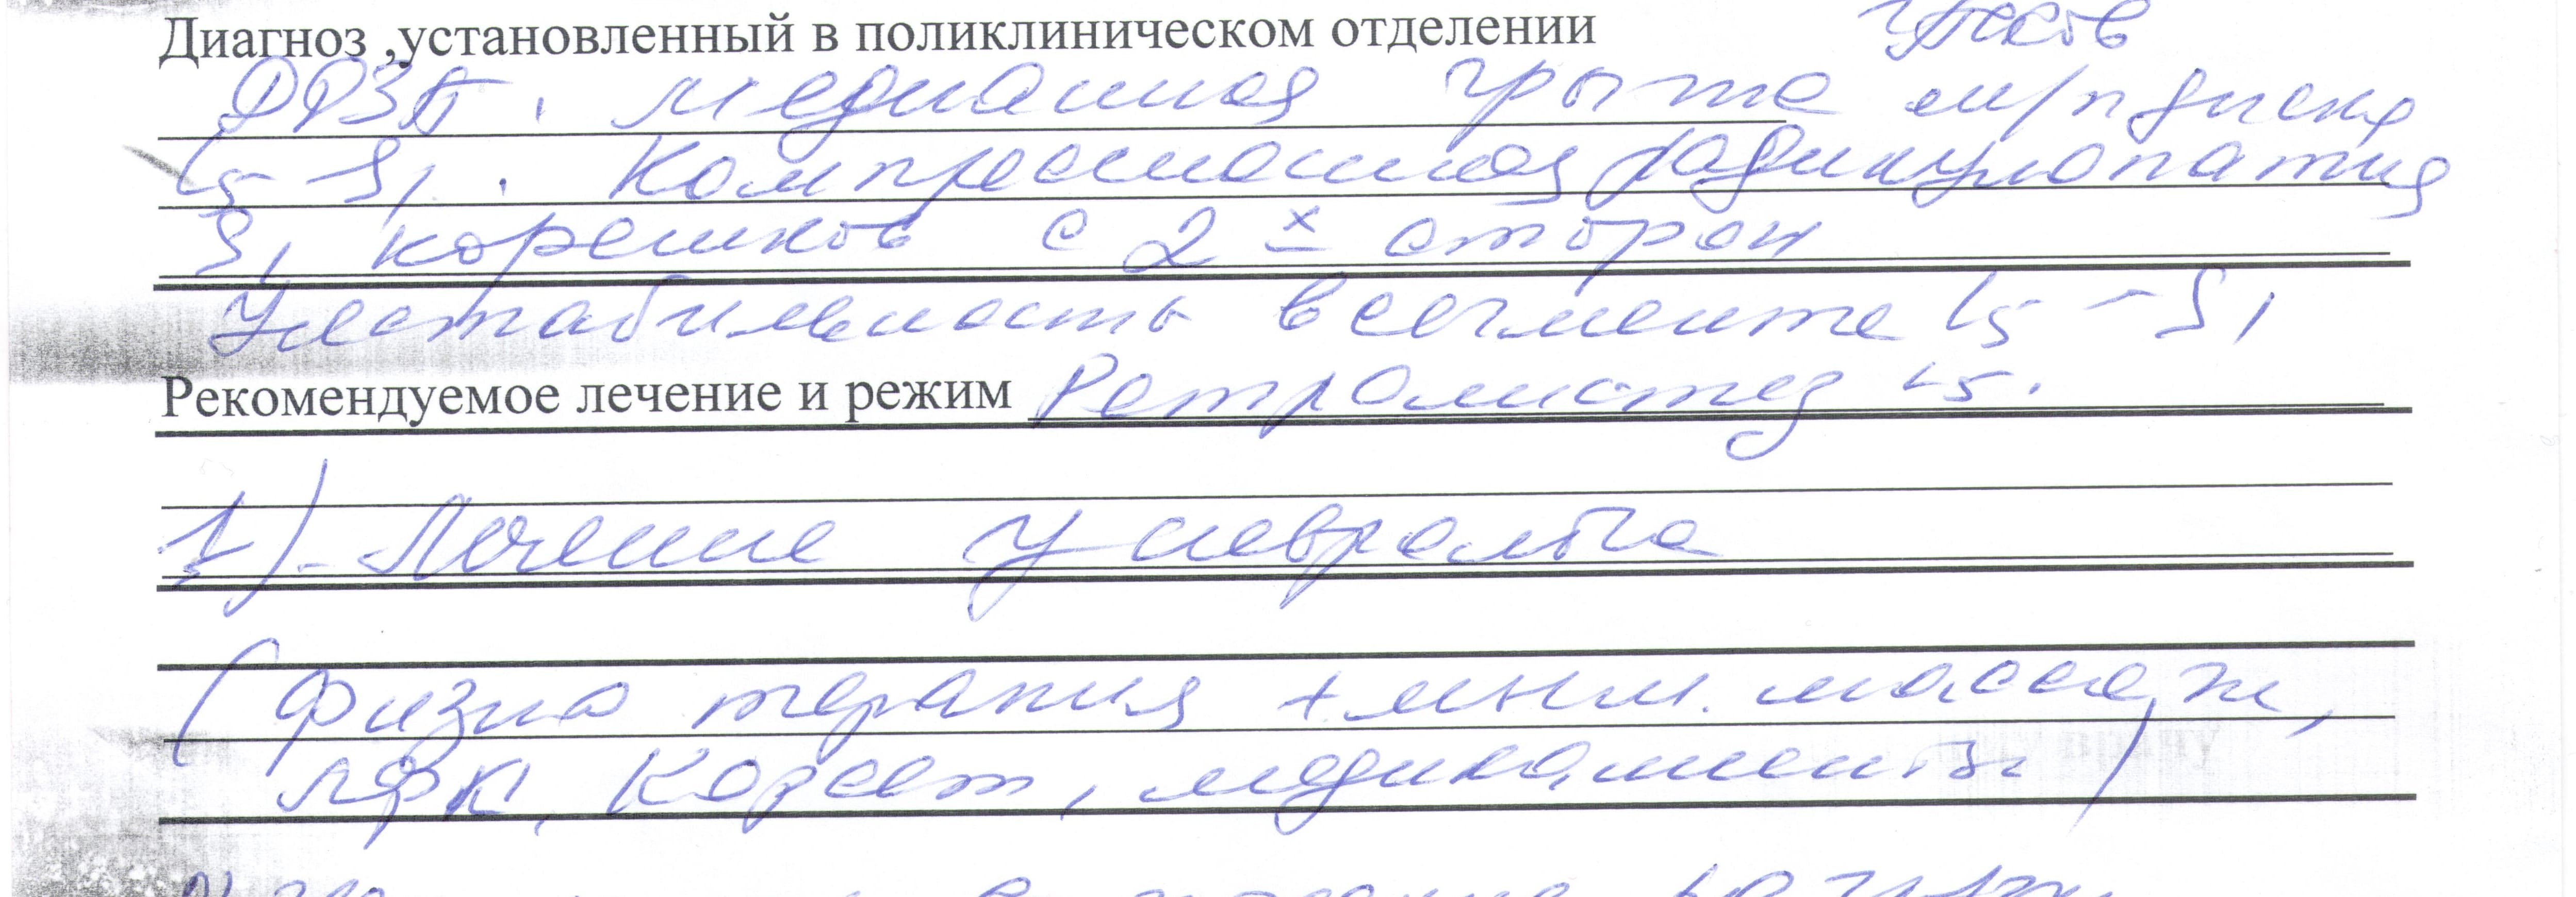 Диагноз ,установленный в поликлиническом отделении
ДДЗП. Медианная грыжа м/п диска
L5-S1. Компрессионная радикулопатия
S1 корешков с 2х сторон
Нестабильность в сегменте L5-S1
Рекомендуемое лечение и режим Ретролистез L5.
1)- Лечение у невролога
(физио терапия + мнм. массаж,
ЛФК, Корсет, медикаменты)